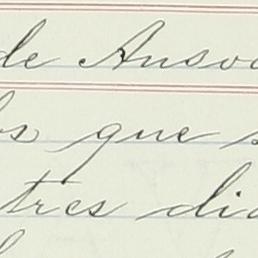 de Ansoa
os que s
tres dia